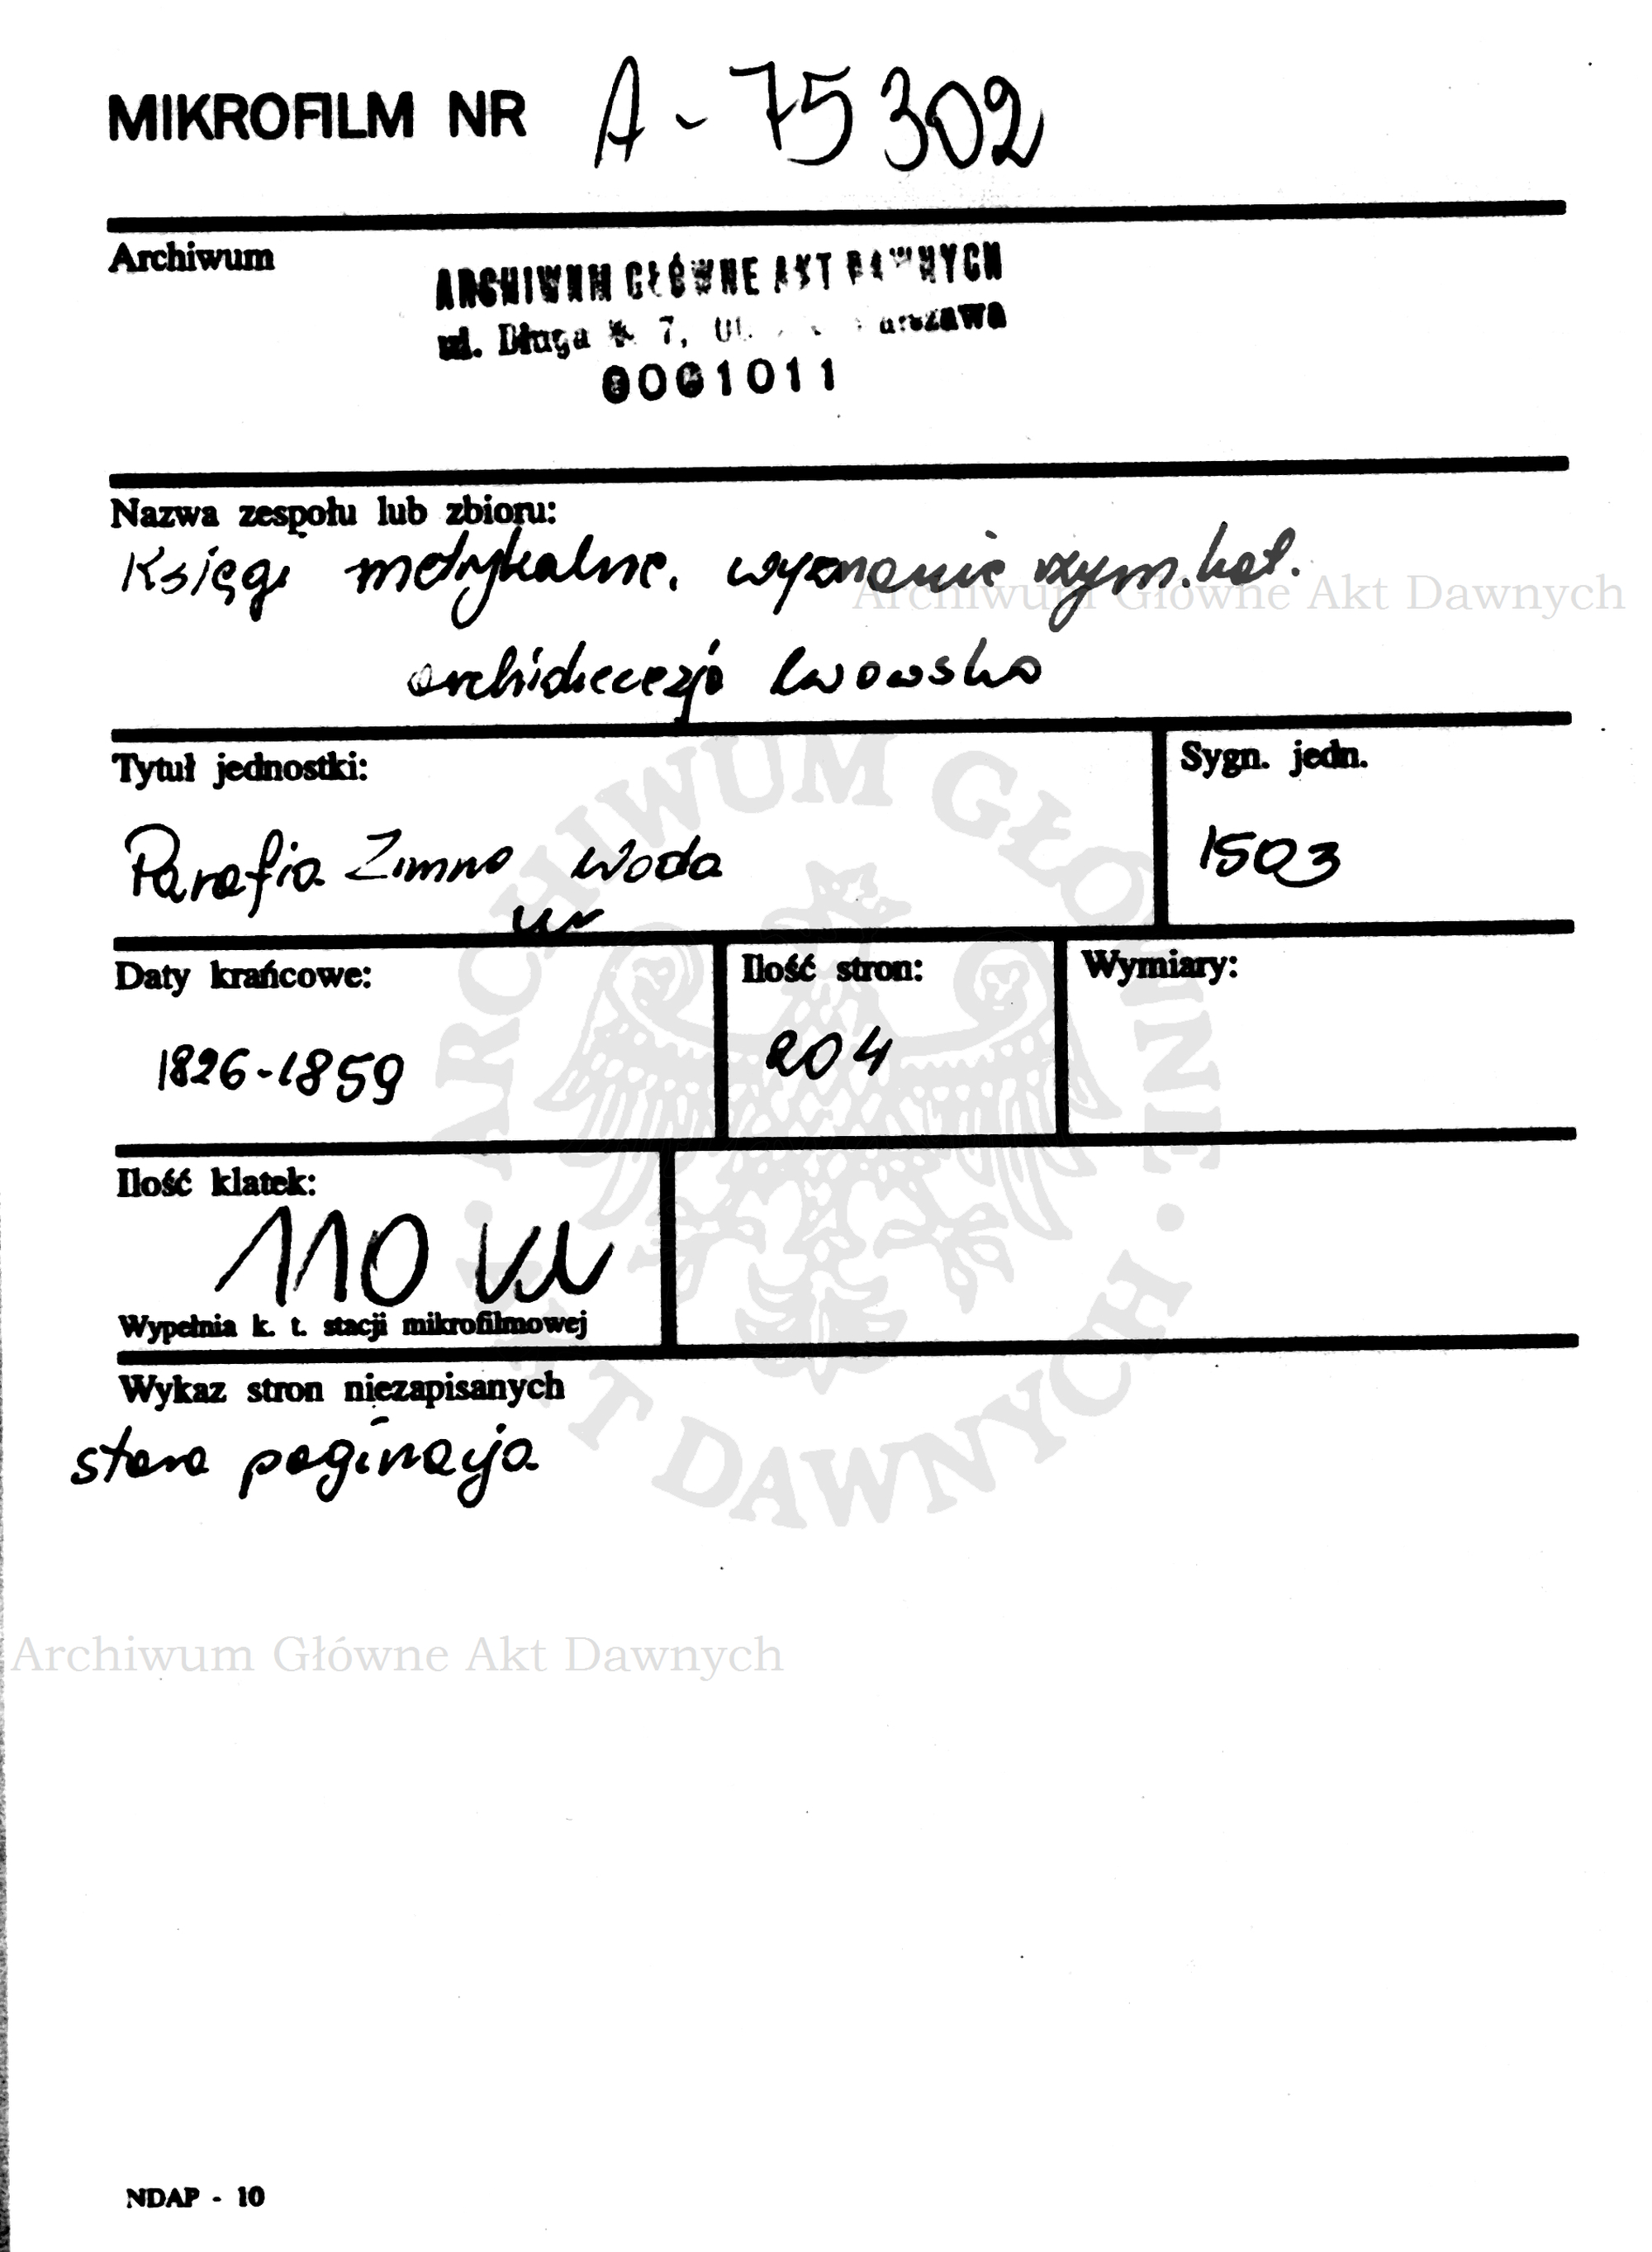 MIKROFILM NR A - 75302
Archiwum
ARCHIWUM GŁÓWNE AKT DAWNYCH
ul. Długa 7, Warszawa
0001011
Nazwa zespołu lub zbioru:
Księgi metrykalne. wyznanie rzym.kat.
Archiwum Główne Akt Dawnych
archidiecezja lwowska
Tytuł jednostki:
Sygn. jedn.
Parafia Zimna Woda
1503
ur
Daty krańcowe:
Ilość stron:
Wymiary:
1826-1859
204
Ilość klatek:
110
Wypełnia k. t. stacji mikrofilmowej
Wykaz stron niezapisanych
stara paginacja
ARCHIWUM GŁÓWNE AKT DAWNYCH
Archiwum Główne Akt Dawnych
NDAP - 10